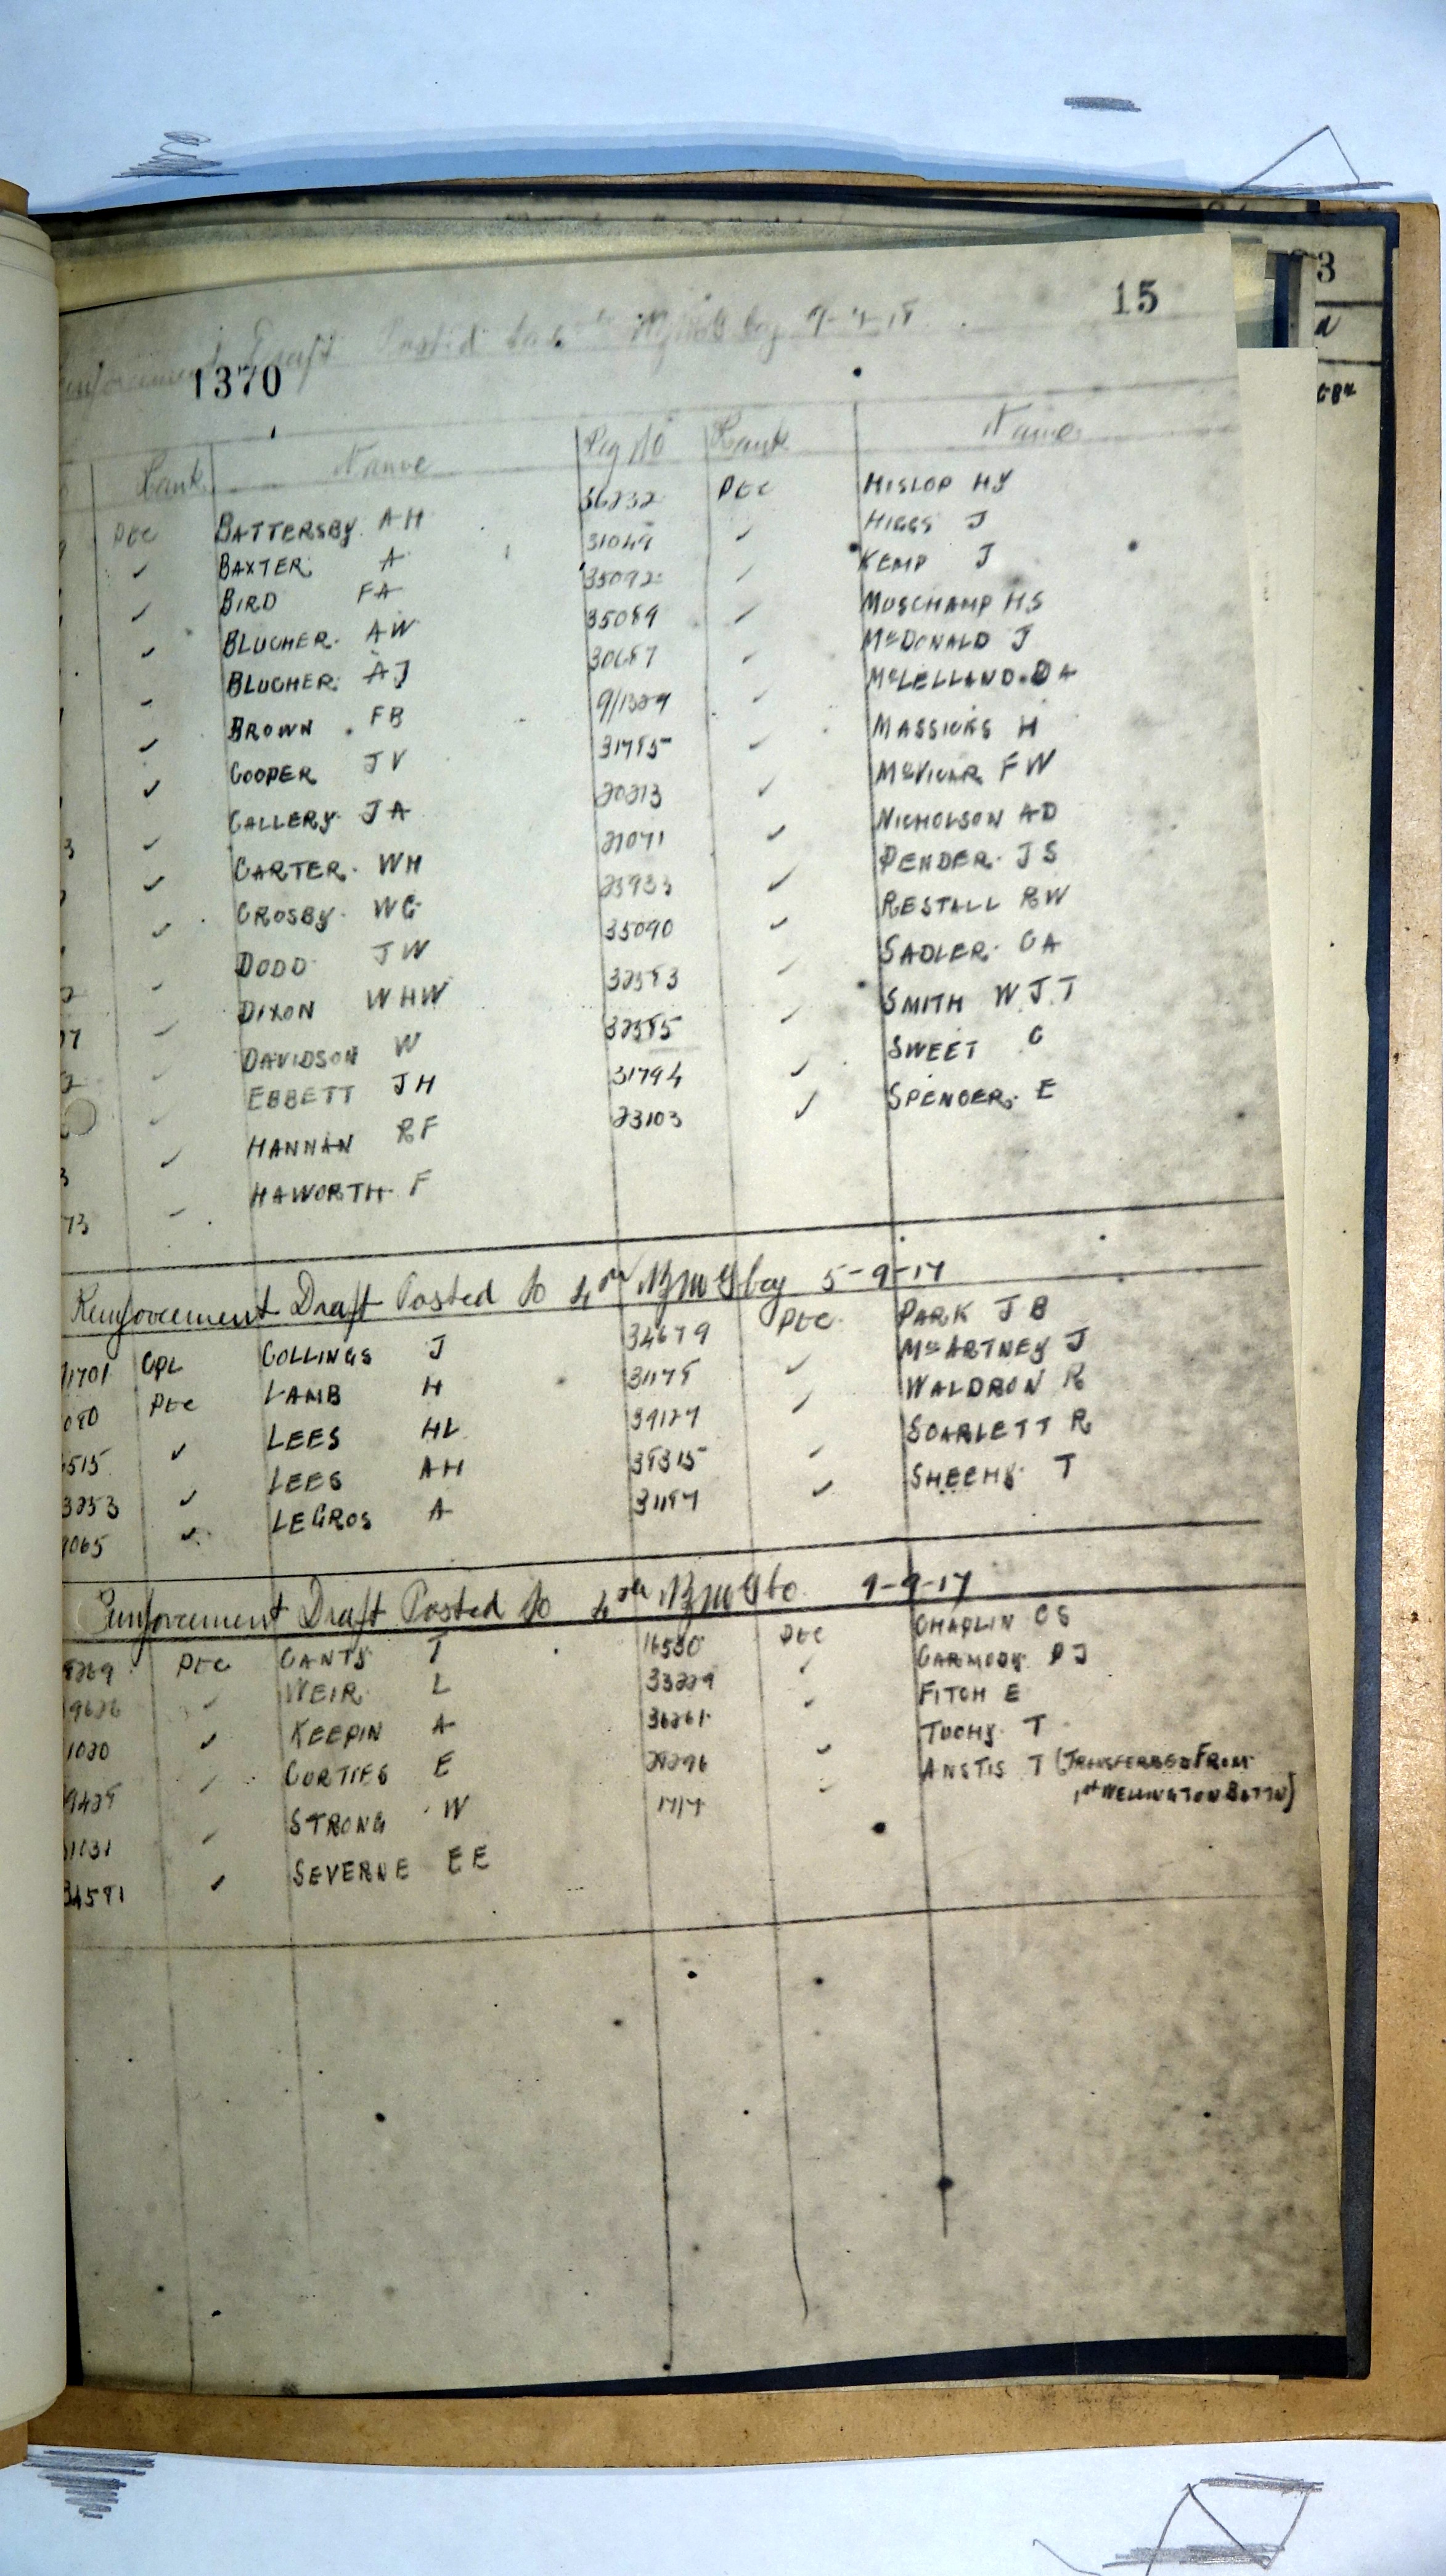 15
Draft Posted to
1370
Rank Name Reg No Rank Name
Pte BATTERSBY. AH 36232 Pte HISLOP HJ
✓ BAXTER. A 31049 ✓ HIGGS J
✓ BIRD FA 35092 ✓ KEMP J
✓ BLUCHER. AW 35089 ✓ MUSCHAMP HS
✓ BLUCHER. AJ 30687 ✓ McDONALD J
✓ BROWN FB 9/1329 ✓ McLELLAND. DA
✓ COOPER JV 31785 ✓ MASSICKS H
✓ CALLERY. JA 20213 ✓ McVICAR FW
✓ CARTER. WH 21071 ✓ NICHOLSON AD
✓ CROSBY. WG 23933 ✓ PENDER. JS
✓ DODD JW 35090 ✓ RESTALL RW
✓ DIXON WHW 32583 ✓ SADLER. CA
✓ DAVIDSON W 32585 ✓ SMITH W.J.T
✓ EBBETT JH 31794 ✓ SWEET C
✓ HANNAN RF 23103 ✓ SPENCER. E
73 ✓ HAWORTH. F
Reinforcement Draft Posted to 4th NZMG Coy 5-9-17
1701 CPL COLLINGS J 34679 Pte. PARK JB
080 Pte LAMB H 31178 ✓ McARTNEY J
6515 ✓ LEES HL 39127 ✓ WALDRON R
3253 ✓ LEES AH 38315 ✓ SCARLETT R
9065 ✓ LEGROS A 31187 ✓ SHEEHY. T
Reinforcement Draft Posted to 4th NZMG Co. 9-9-17
8269 Pte CANTY T 16530 Pte CHAPLIN CS
9626 ✓ WEIR. L 33229 ✓ CARMODY PJ
1020 ✓ KEEPIN A 36261 ✓ FITCH E
9428 ✓ CURTIES E 29296 ✓ TUOHY. T
1031 ✓ STRONG W 17/7 ✓ ANSTIS T (TRANSFERRED FROM
1st WELLINGTON BATTN)
34581 ✓ SEVERNE EE